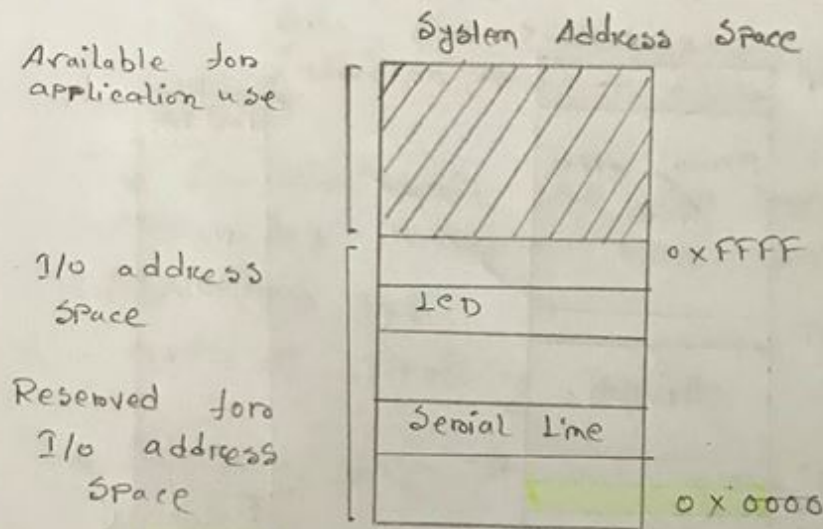 System Address Space
Available for
application use
0xFFFF
I/o address
Space
LCD
Reserved for
I/o address
Space
Serial Line
0x0000